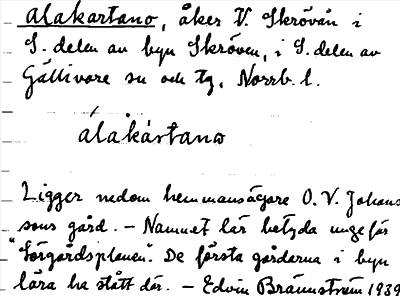 alakartano, åker V. Skrövån i
S. delen av byn Skröven, i S. delen av
Gällivare sn och tg, Norrb. l.
álakàrtano
Ligger nedom hemmansägare O. V. Johans
sons gård. – Namnet lär betyda ungefär
"Sörgårdsplanen". De första gårdarna i byn
lära ha stått där. – Edvin Brännström 1939